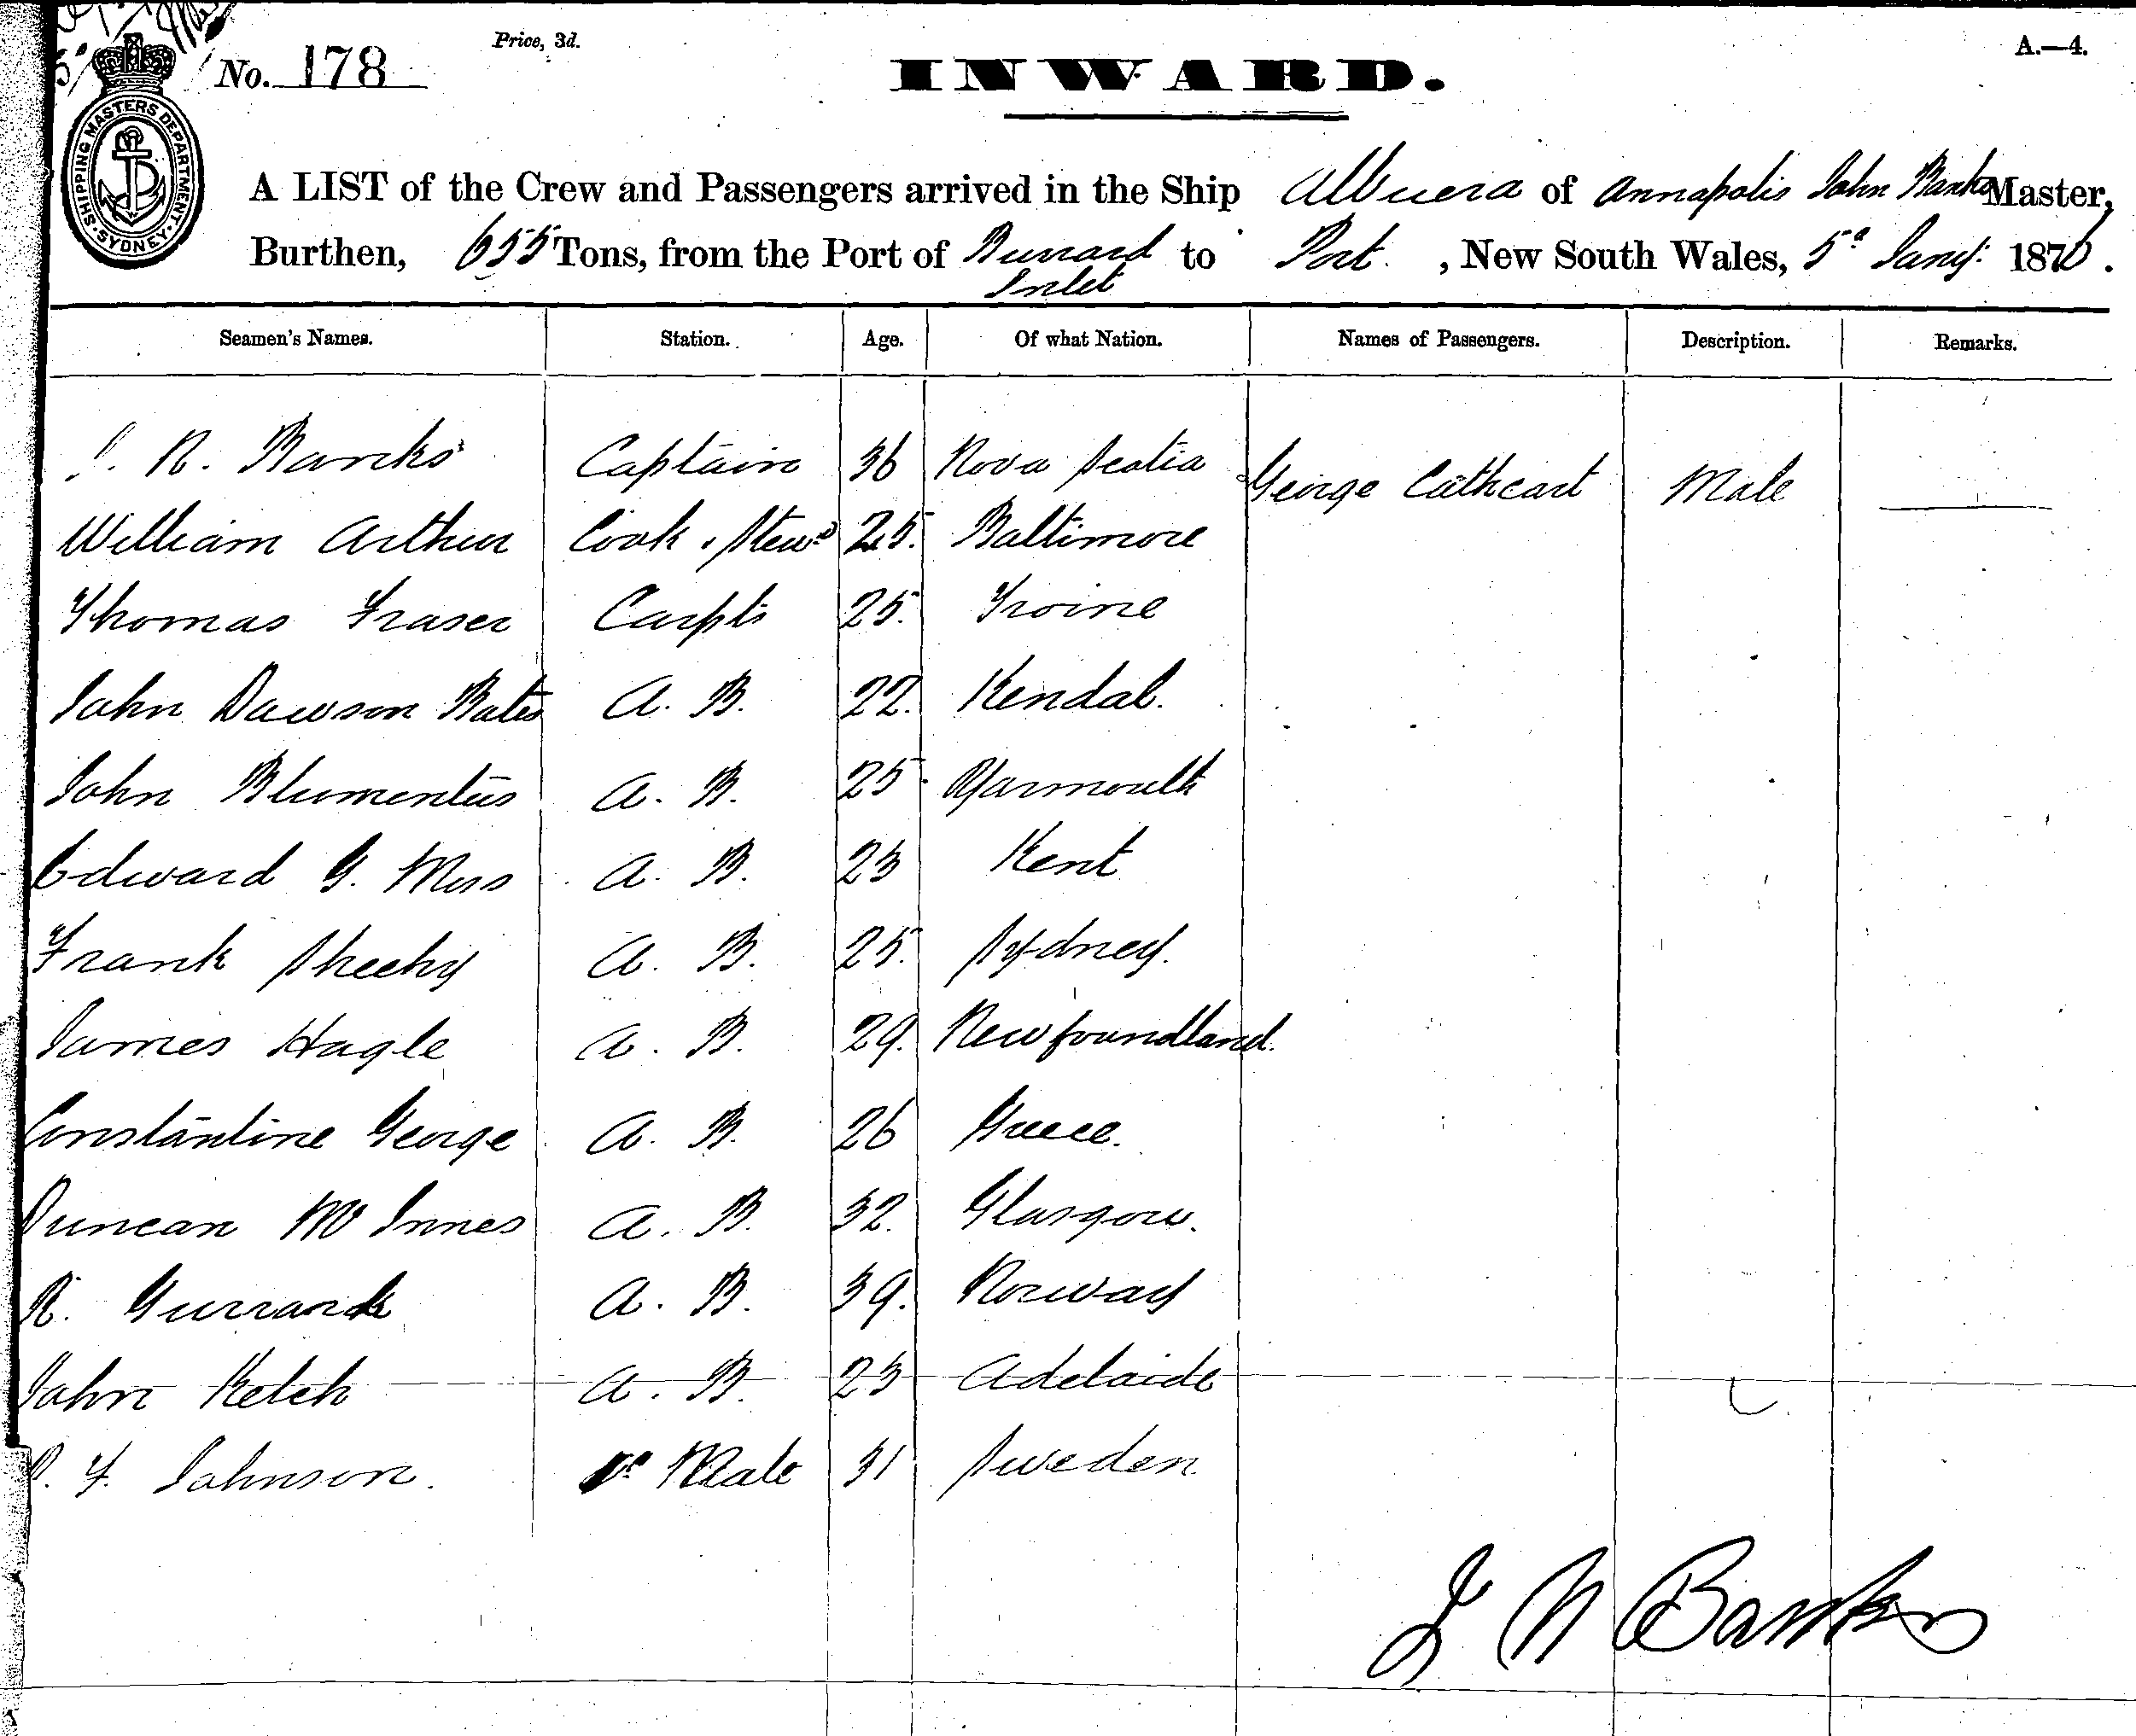 No. 178
Price, 3d.
A.—4.
INWARD.
SHIPPING MASTERS DEPARTMENT
SYDNEY
A LIST of the Crew and Passengers arrived in the Ship Albuera of Annapolis John Banks Master,
Burthen, 655 Tons, from the Port of Burrard Inlet to Port , New South Wales, 5th Jany: 1876.
Seamen's Names. Station. Age. Of what Nation. Names of Passengers. Description. Remarks.
J. N. Banks Captain 36 Nova Scotia George Cathcart Male
William Arthur Cook & Stewd 25. Baltimore
Thomas Fraser Carptr 25. Irvine
John Dawson Bates A. B. 22. Kendal.
John A. B. 25 Yarmouth
Edward G. Moss A. B. 23 Kent
Frank Sheehy A. B. 25. Sydney.
James Hagle A. B. 29. Newfoundland.
Constantine George A. B. 26 Greece.
Duncan Mc Innes A. B. 32. Glasgow.
A. B. 39. Norway
John Ketch A. B. 23 Adelaide
F. Johnson. Mate 31 Sweden
J N Banks